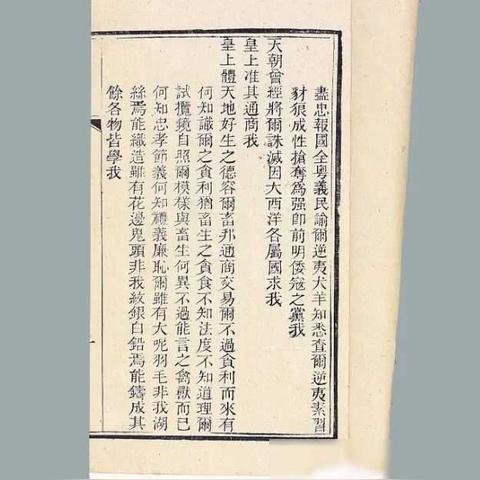 盡忠報國全粵義民諭爾逆夷犬羊知悉查爾逆夷素習
豺狼成性搶奪為强卽前明倭寇之黨我
天朝曾經將爾誅滅因大西洋各屬國求我
皇上准其通商我
皇上體天地好生之德容爾畜邦通商交易爾不過貪利而來有
何知識爾之貪利猶畜生之貪食不知法度不知道理爾
試攬鏡自照爾模樣與畜生何異不過能言之禽獸而已
何知忠孝節義何知禮義廉恥爾雖有大呢羽毛非我湖
絲焉能織造雖有花邊鬼頭非我紋銀白鉛焉能鑄成其
餘各物皆學我